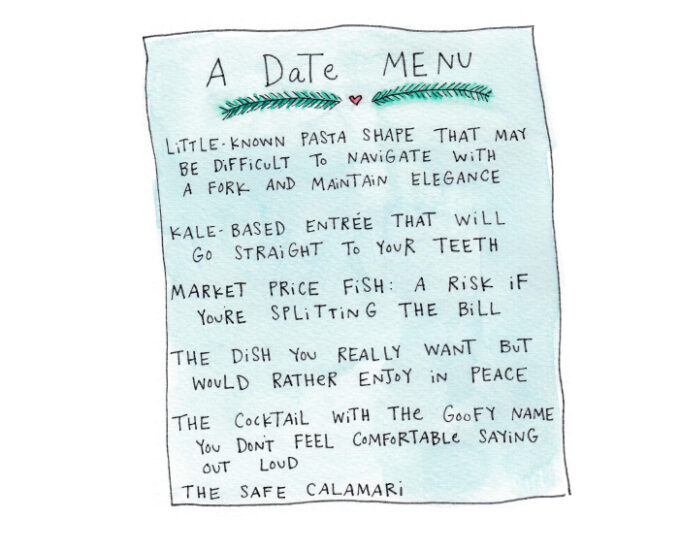 A DaTe MENU
LiTTLE-KNOWN PASTA SHAPE THAT MAY
BE DiFFiCULT TO NAViGATE WiTH
A FORK AND MAiNTAiN ELEGANCE
KALE-BASED ENTRÉE THAT WiLL
GO STRAiGHT TO YOUR TEETH
MARKET PRiCE FiSH: A RiSK iF
YOU'RE SPLiTTiNG THE BiLL
THE DiSH YOU REALLY WANT BUT
WOULD RATHeR ENJOY iN PEACE
THE COCKTAiL WiTH THe GOOFY NAME
YOU DON'T FEEL COMFORTABLe SAYiNG
OUT LOUD
THE SAFE CALAMARi